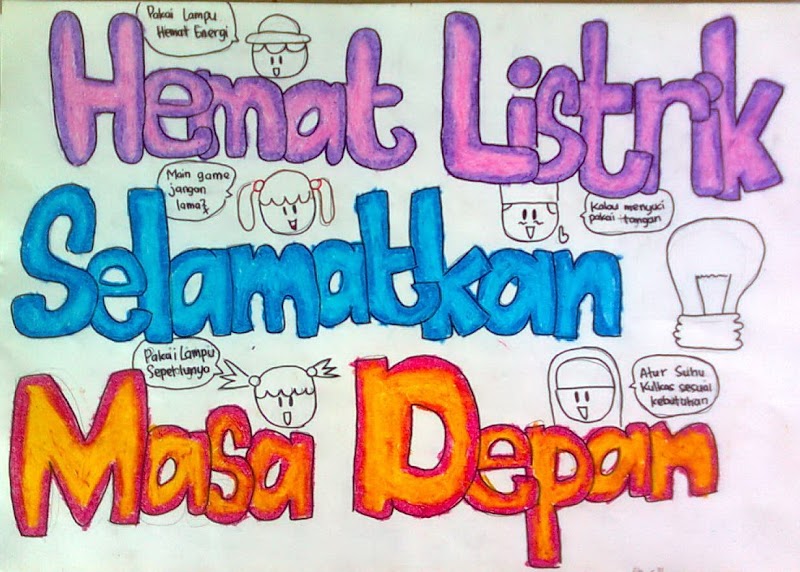 Pakai Lampu
Hemat Energi
Hemat Listrik
Main game
jangan
lama2x
Kalau menyuci
pakai tangan
Selamatkan
Pakai Lampu
Seperlunya
Atur Suhu
Kulkas sesuai
kebutuhan
Masa Depan